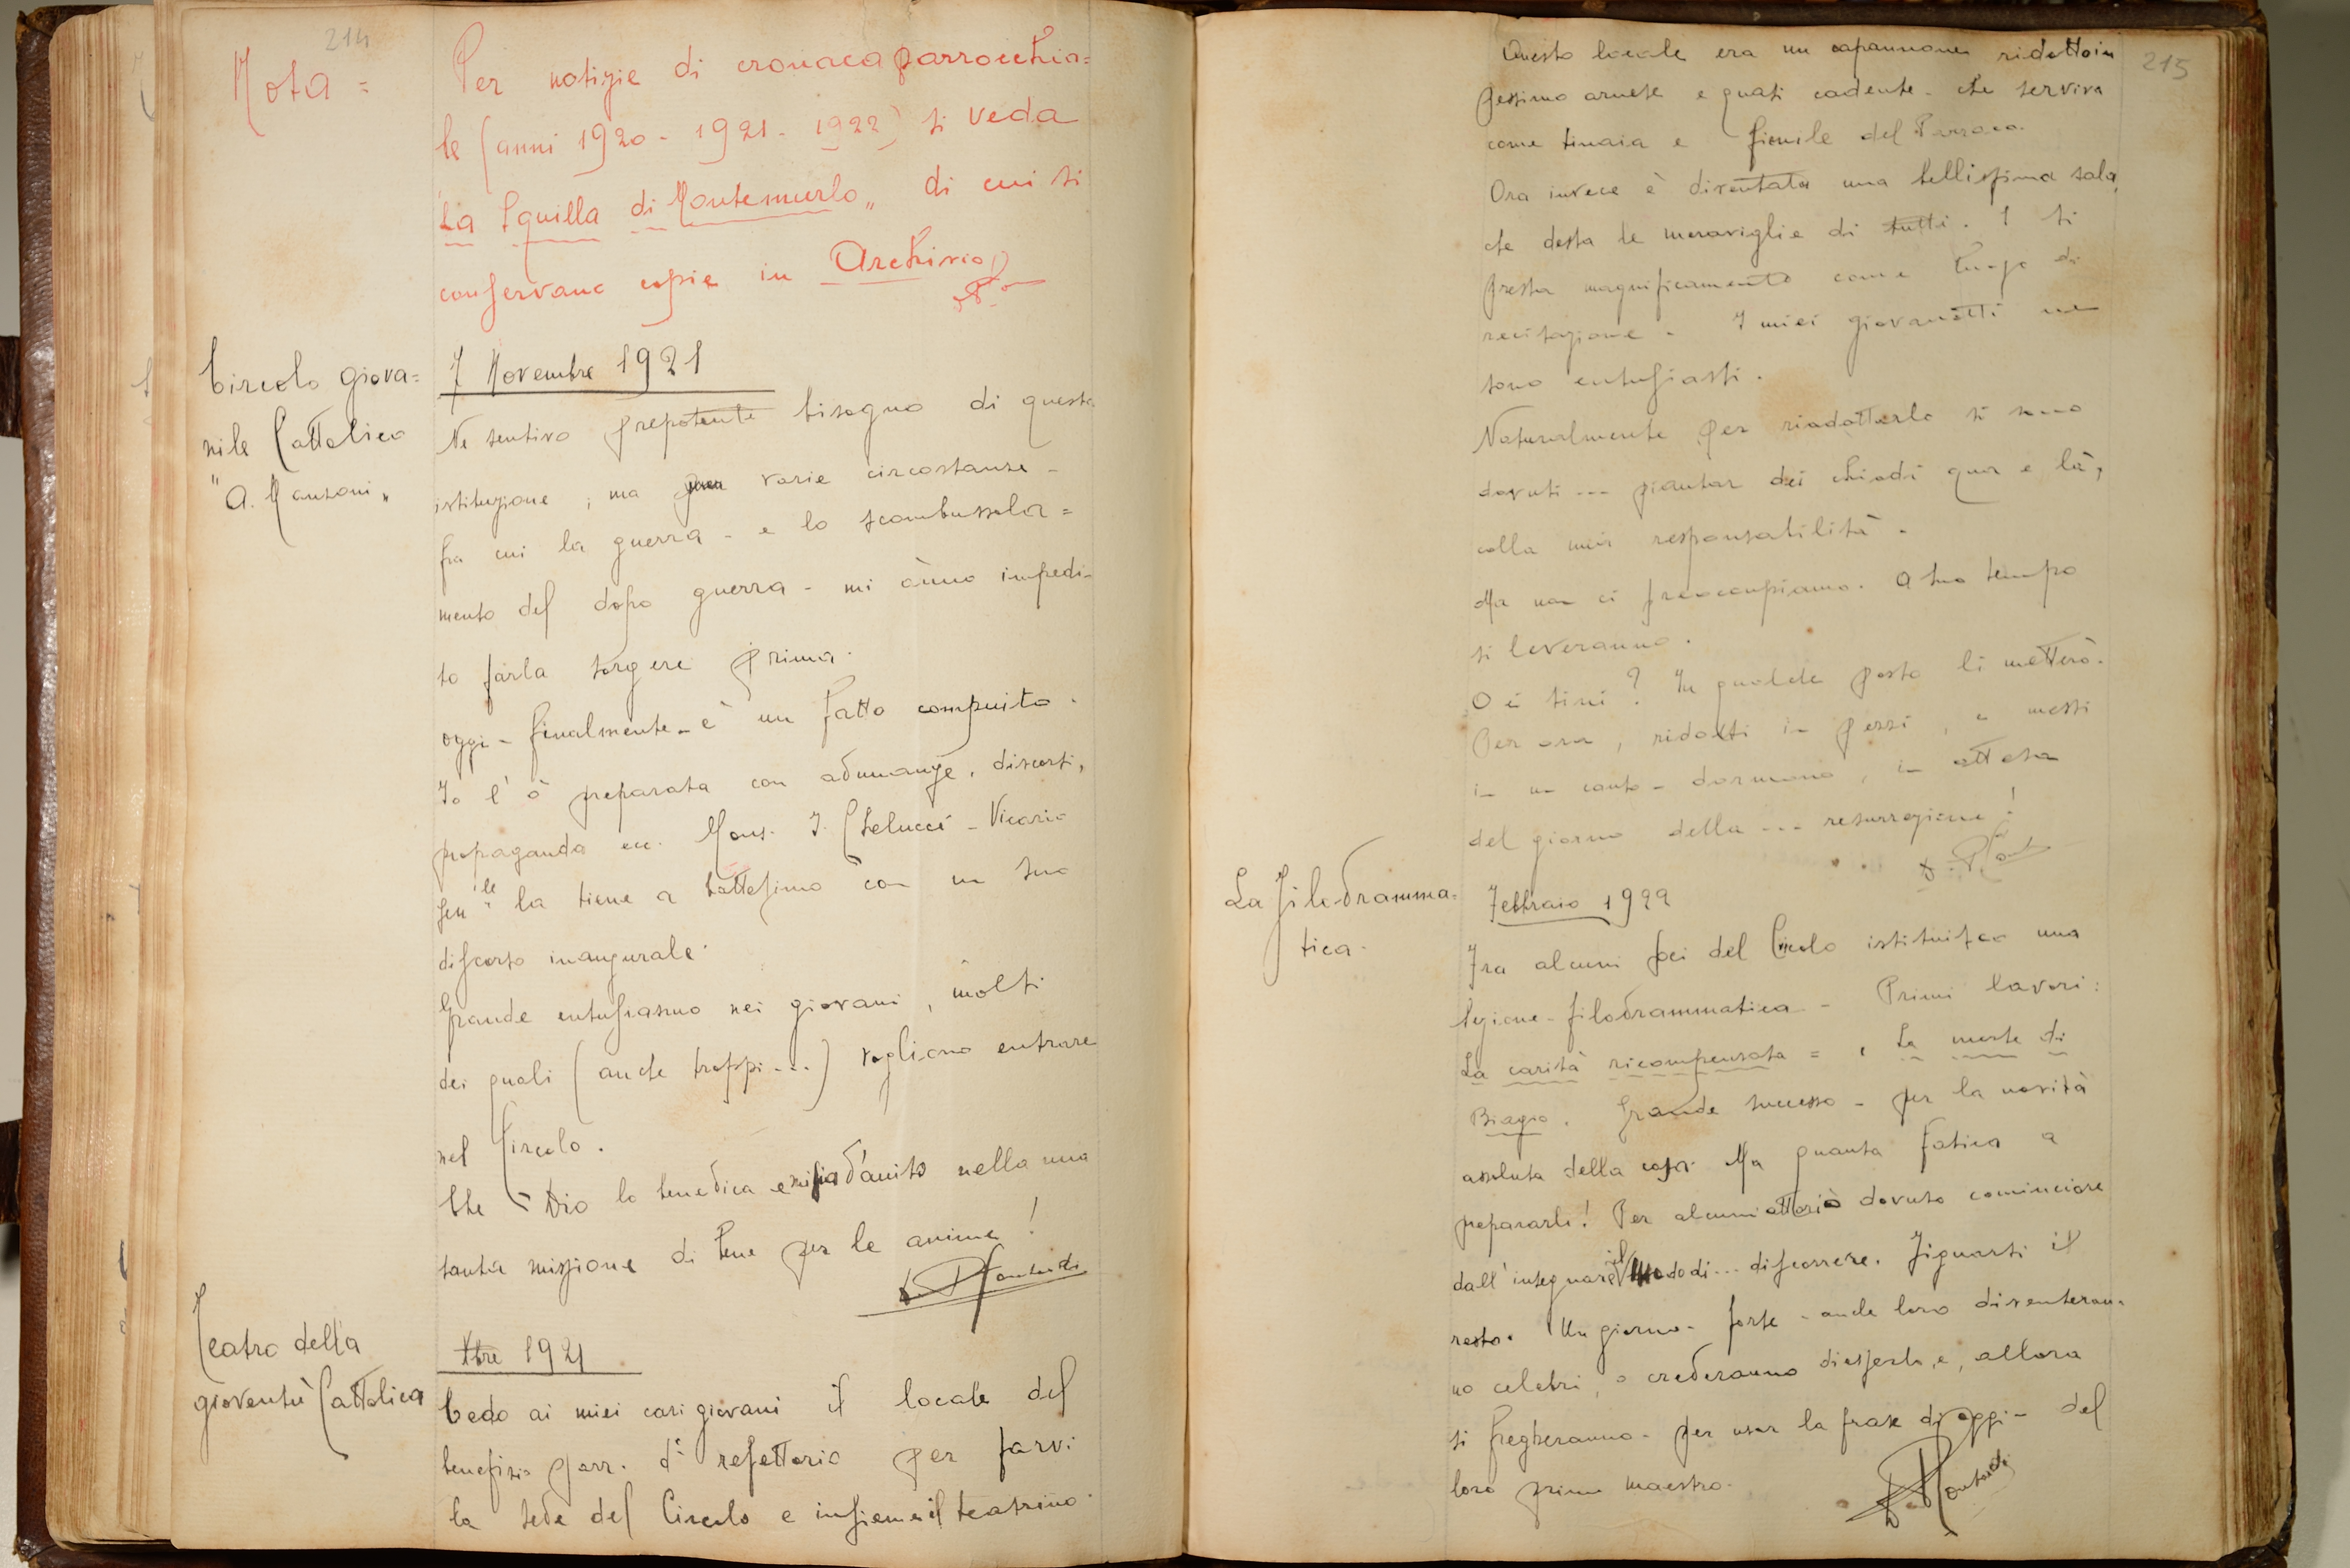 214
Nota =
Per notizie di cronaca parrocchia=
le (anni 1920 - 1921 - 1922) si veda
"La Squilla di Montemurlo" di cui si
conservano copie in Archivio
Circolo giova=
nile Cattolico
"A. Manzoni"
7 Novembre 1921
Ne sentivo prepotente bisogno di questa
istituzione, ma varie circostanze -
fra cui la guerra - e lo scombussola=
mento del dopo guerra - mi ànno impedi-
to farla sorgere prima.
Oggi - finalmente - è un fatto compiuto.
Io l'ò preparata con adunanze, discorsi,
propaganda ecc. Mons. I. Chelucci - Vicario
Gen.le la tiene a battesimo con un suo
discorso inaugurale.
Grande entusiasmo nei giovani, molti
dei quali (anche troppi...) vogliono entrare
nel Circolo.
Che Dio lo benedica e mi sia d'aiuto nella mia
santa missione di bene per le anime!
Teatro della
gioventù Cattolica
Xbre 1921
Cedo ai miei cari giovani il locale del
benefizio parr. di refettorio per farvi
la sede del Circolo e insieme il teatrino.
215
Questo locale era un capannone ridotto in
pessimo arnese e quasi cadente - che serviva
come tinaia e fienile del Parroco.
Ora invece è diventata una bellissima sala,
che desta le meraviglie di tutti. E si
presta magnificamente come luogo di
recitazione - I miei giovanetti ne
sono entusiasti.
Naturalmente per riadattarlo si sono
dovuti ... piantar dei chiodi qua e là,
colla mia responsabilità.
Ma non ci preoccupiamo. A suo tempo
si leveranno.
O i tini? In qualche posto li metterò.
Per ora, ridotti in pezzi, e messi
in un canto - dormono, in attesa
del giorno della ... resurrezione!
La Filodramma-
tica.
Febbraio 1922
Fra alcuni soci del Circolo istituisco una
Sezione - filodrammatica - Primi lavori:
La carità ricompensata = La morte di
Biagio. Grande successo - per la novità
assoluta della cosa. Ma quanta fatica a
prepararli! Per alcuni attori ò dovuto cominciare
dall'insegnare il modo di ... discorrere. Figuarsi il
resto. Un giorno - forse - anche loro diventeran-
no celebri, o crederanno di esserlo, e, allora
si fregheranno - per usar la frase di oggi - del
loro primo maestro.